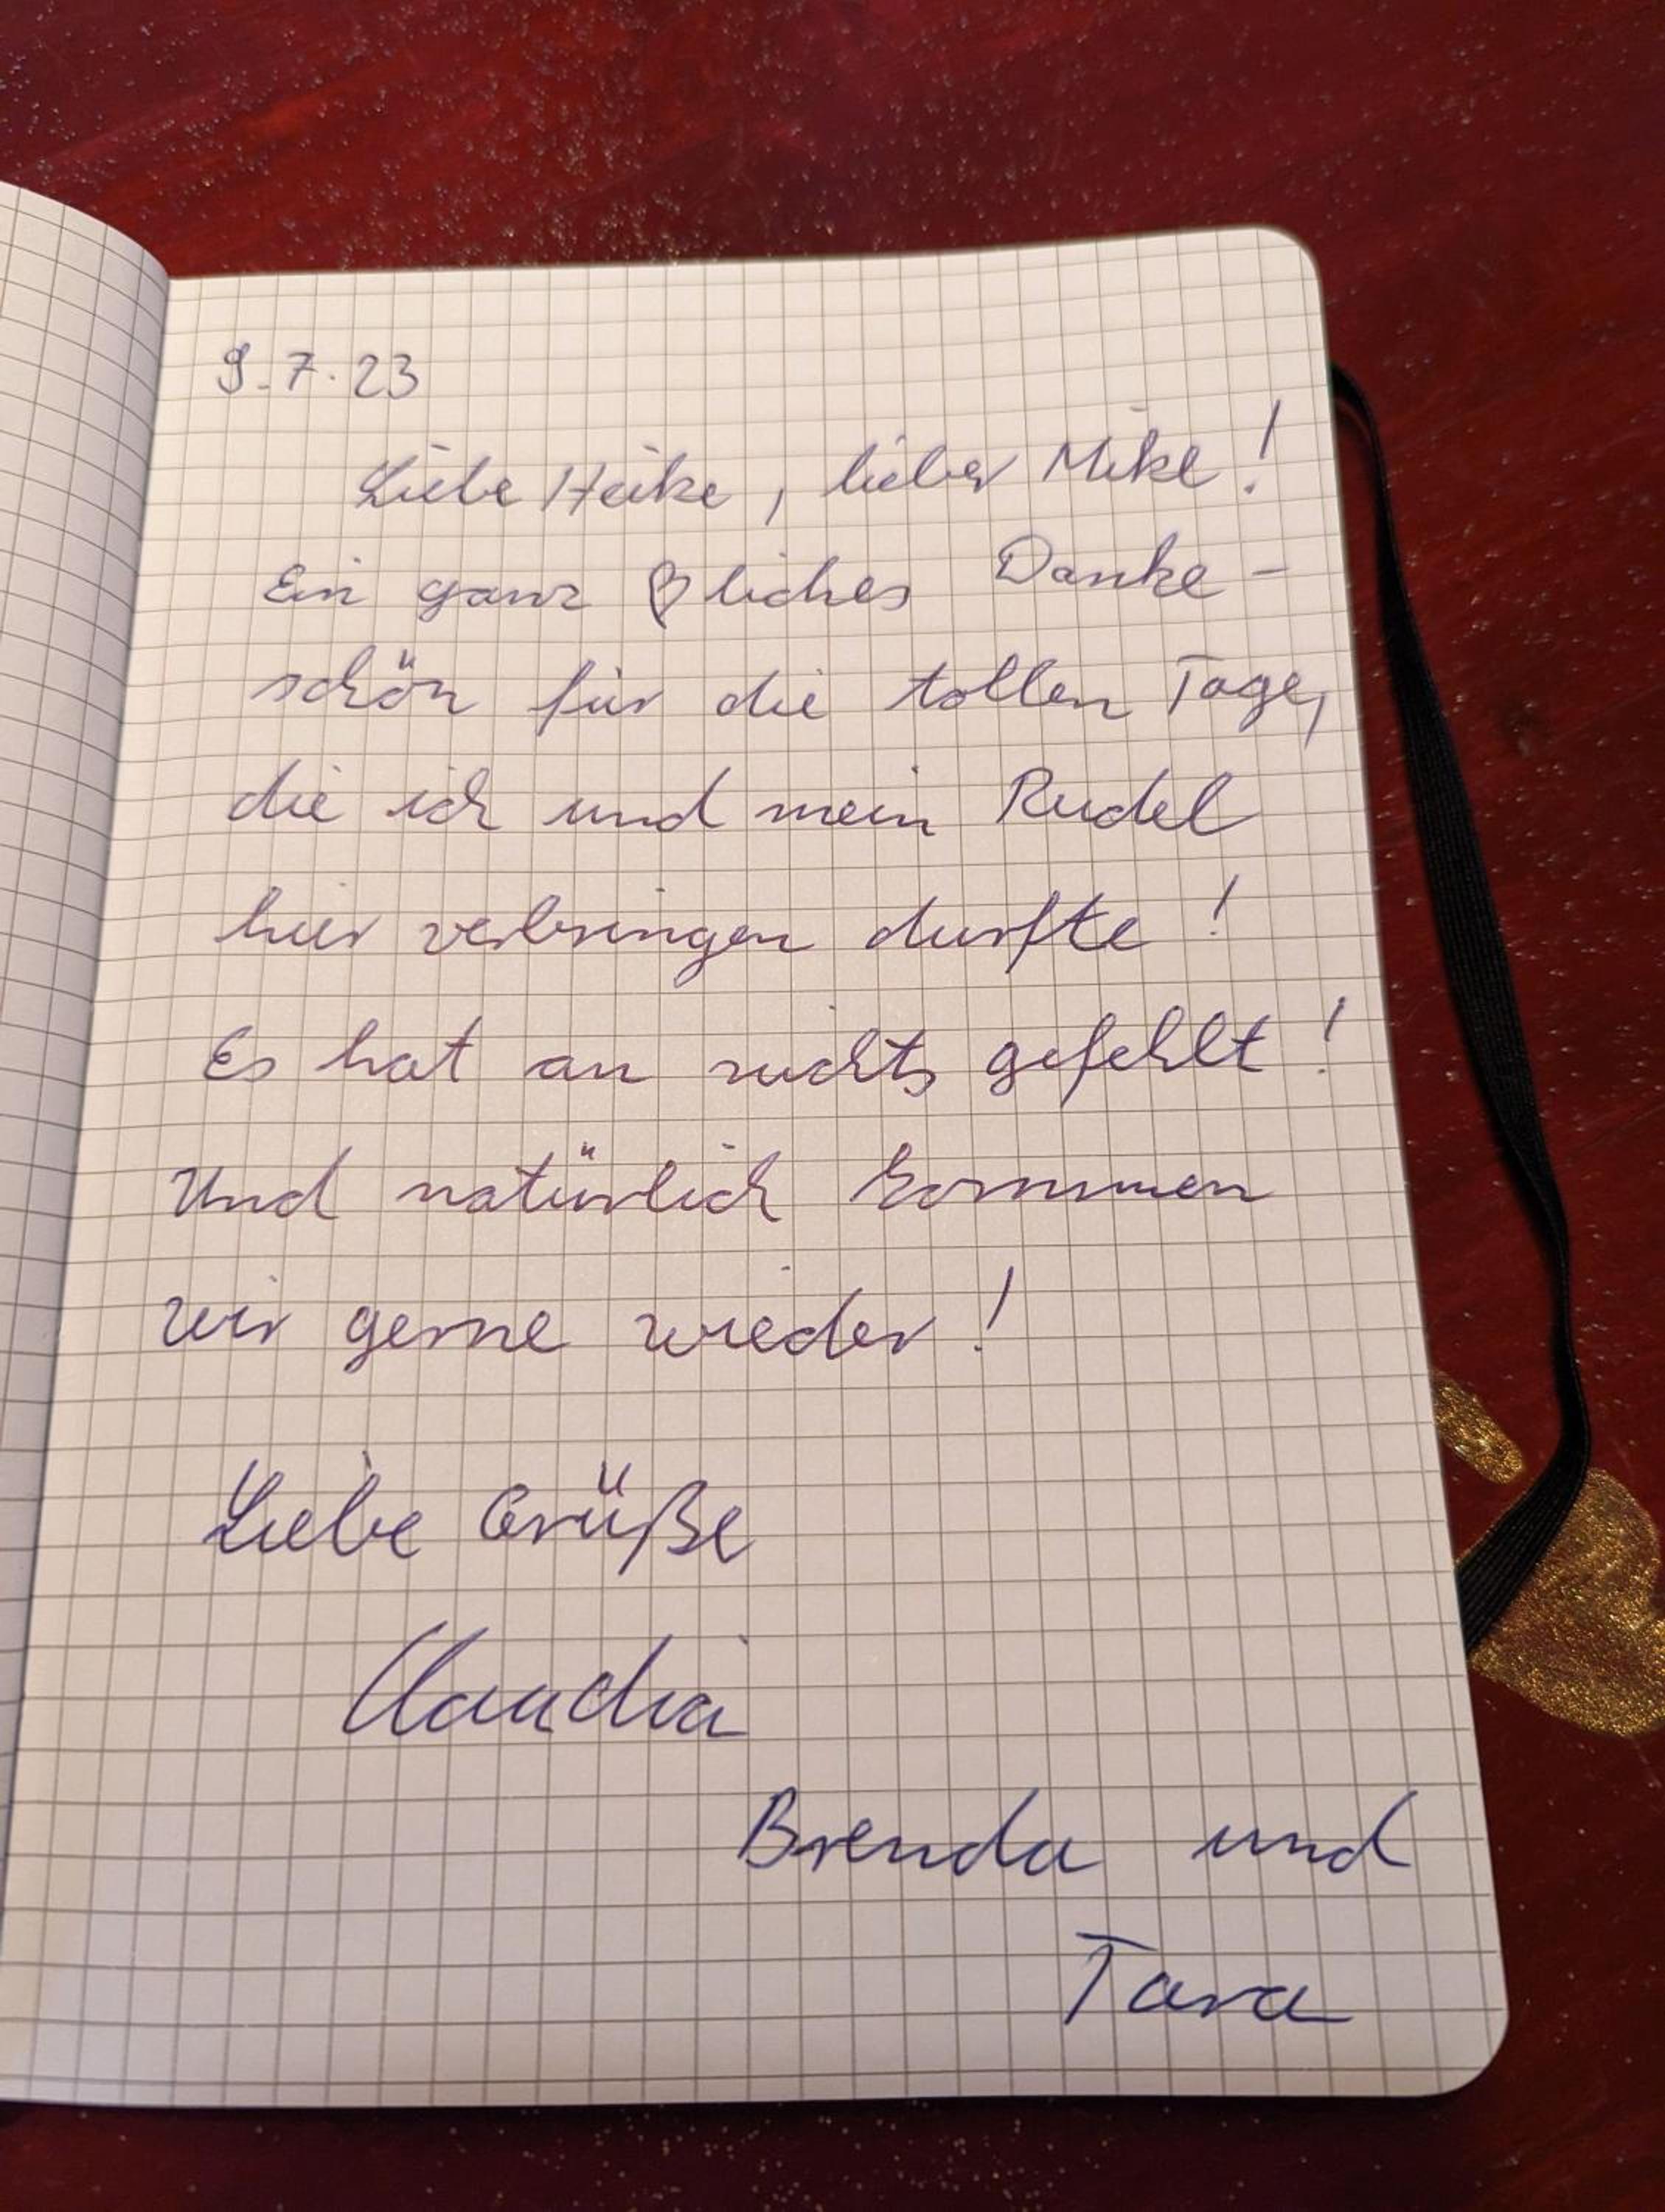 9.7.23
Liebe Heike, lieber Mike!
Ein ganz ♡liches Danke-
schön für die tollen Tage,
die ich und mein Rudel
hier verbringen durfte!
Es hat an nichts gefehlt!
Und natürlich kommen
wir gerne wieder!
Liebe Grüße
Claudia
Brenda und
Tara